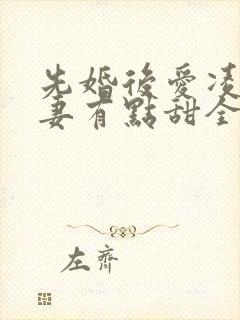 先婚後愛凌
妻有點甜全
左齊